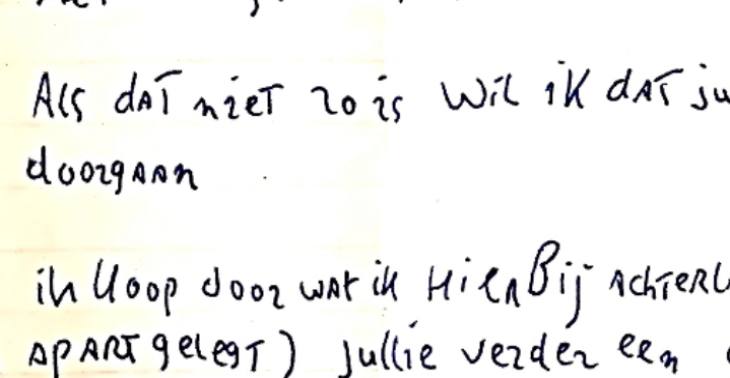 Als dat niet zo is wil ik dat ju
doorgaan
ik hoop door wat ik hierbij achterl
apart gelegt) jullie verder een